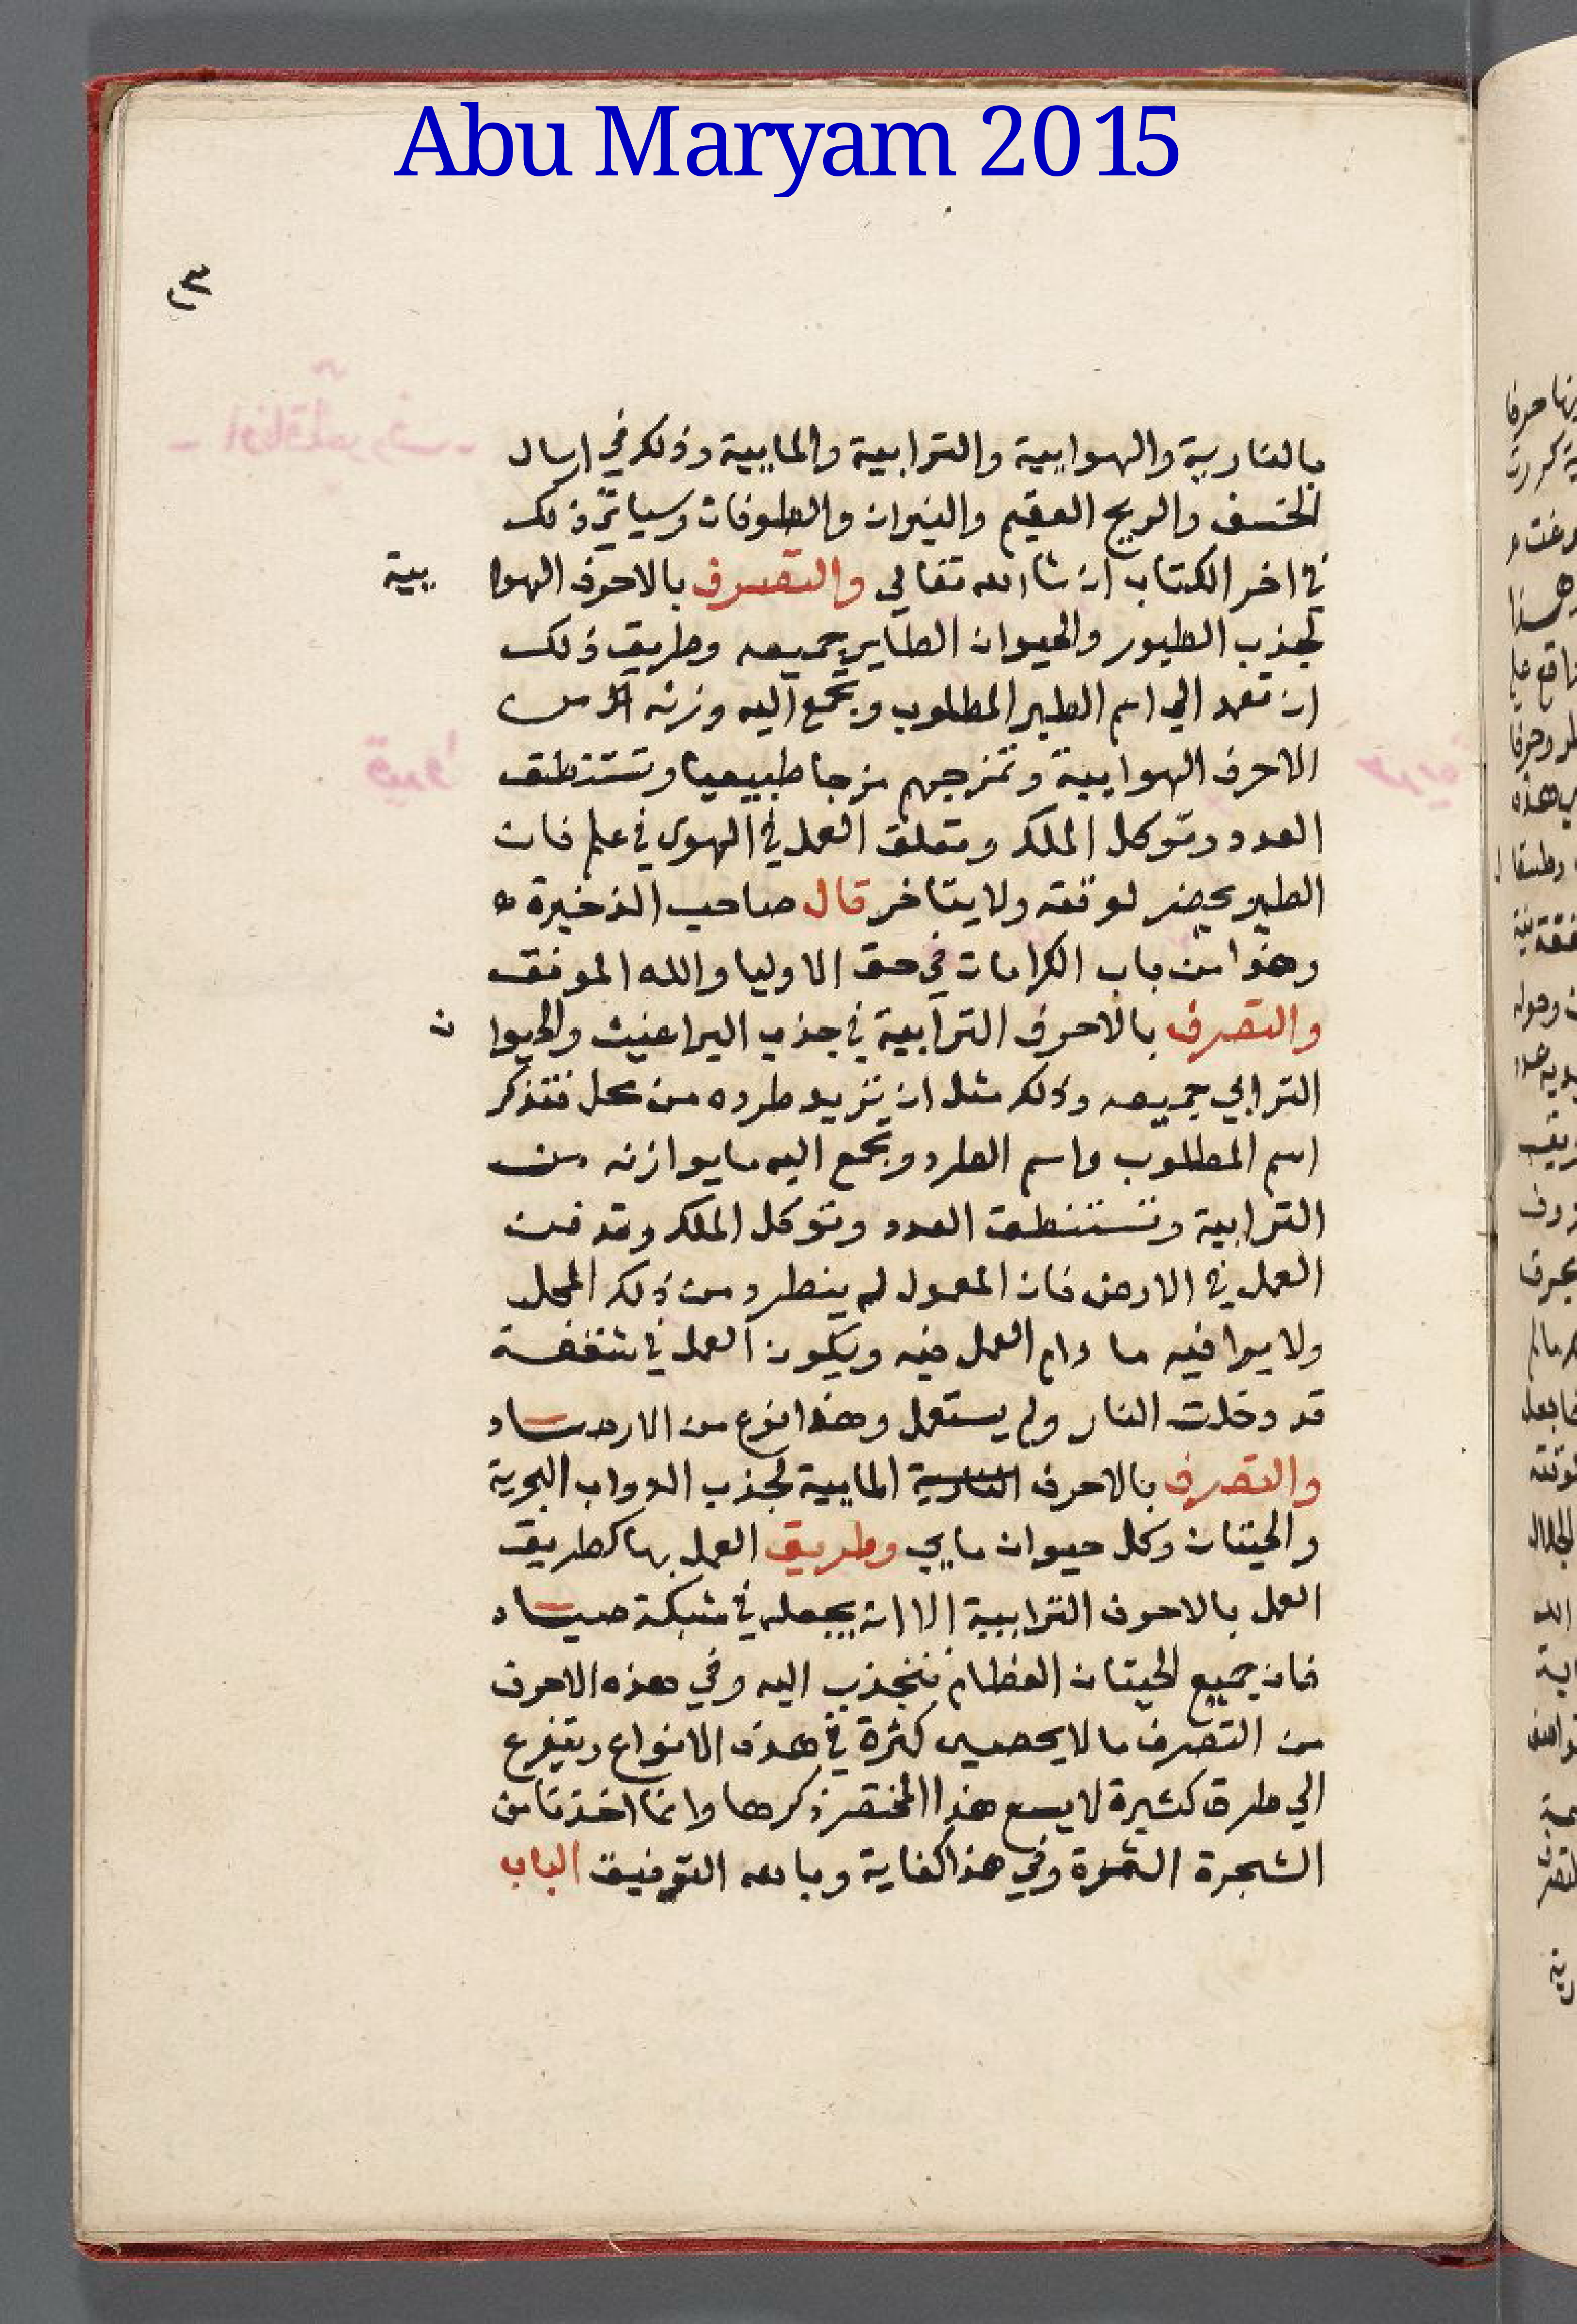 Abu Maryam 2015
٣
بالنارية والهوايية والترابية والمايية وذلك في ارسال
الخسف والريح العقيم والنيران والطوفان وسياتي ذلك
في اخر الكتاب ان شا الله تعالي والتصرف بالاحرف الهوايية
لجذب الطيور والحيوان الطاير جميعه وطريق ذلك
ان تعمد الي اسم الطير المطلوب وتجمع اليه وزنه من
الاحرف الهوايية وتمزجهم مزجا طبيعيا وتستنطق
العدد وتوكل الملك وتعلق العمل في الهوي في علم فان
الطير يحضر لوقته ولا يتاخر قال صاحب الذخيرة
وهذا من باب الكرامات في حق الاوليا والله الموفق
والتصرف بالاحرف الترابية في جذب البراغيث والحيوان
الترابي جميعه وذلك مثل ان تريد طرده من محل فتذكر
اسم المطلوب واسم الطرد وتجمع اليه ما يوازنه من
الترابية وتستنطق العدد وتوكل الملك وتدفن
العمل في الارض فان المعمول له ينطرد من ذلك المحل
ولا يرا فيه ما دام العمل فيه ويكون العمل في شقفة
قد دخلت النار ولم يستعمل وهذا نوع من الارصاد
والتصرف بالاحرف النارية المايية لجذب الدواب البحرية
والحيتان وكل حيوان مايي وطريق العمل بها كطريق
العمل بالاحرف الترابية الا ان يجعله في شبكة صياد
فان جميع الحيتان العظام تنجذب اليه وفي هذه الاحرف
من التصرف ما لا يحصي كثرة في هذه الانواع ويتفرع
الي طرق كثيرة لا يسع هذا المختصر ذكرها وانما اخذنا من
الشجرة الثمرة وفي هذا كفاية وبالله التوفيق الباب